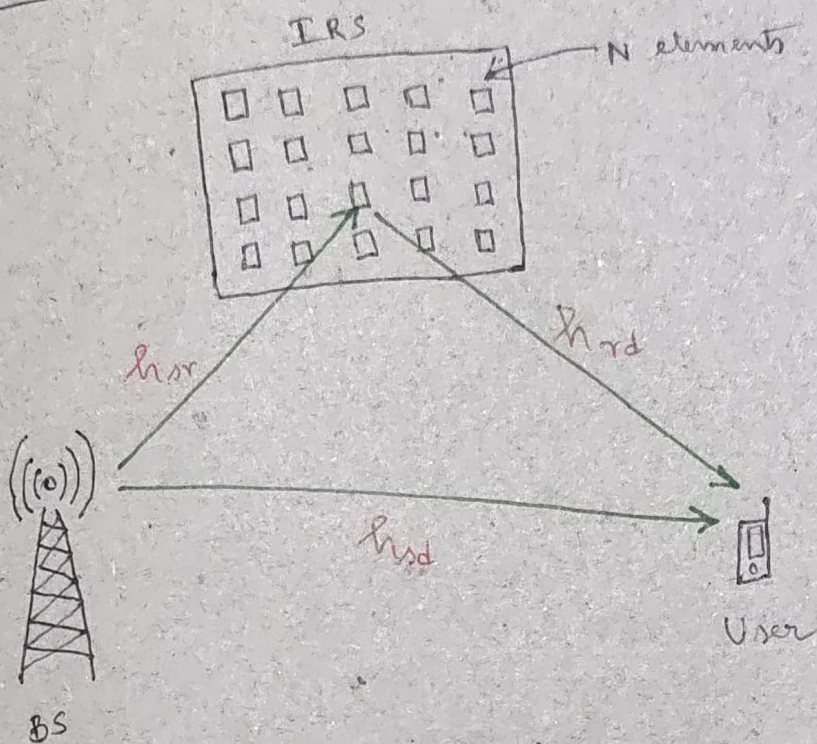 IRS
N elements
hsr
hrd
hsd
User
BS